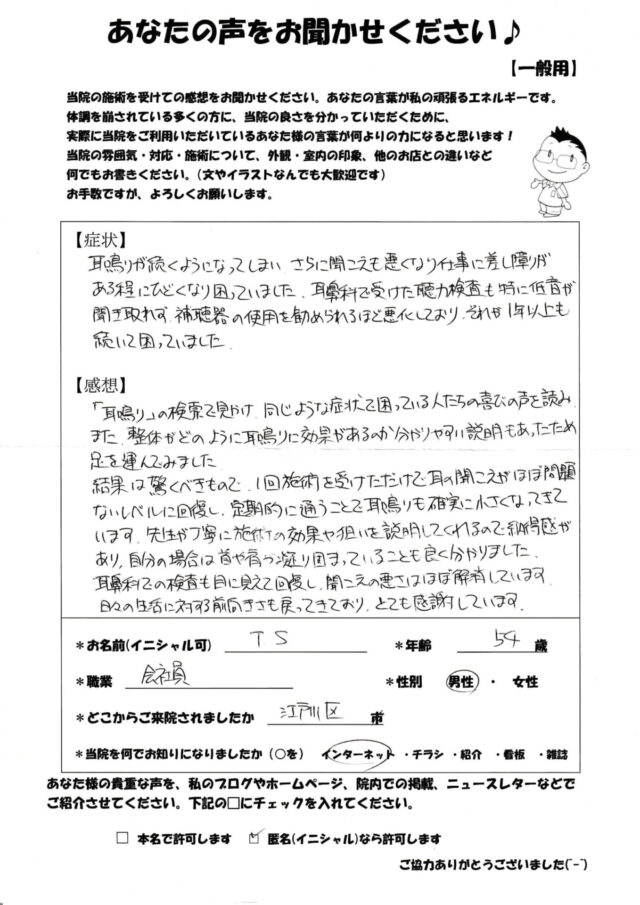 あなたの声をお聞かせください♪
【一般用】
当院の施術を受けての感想をお聞かせください。あなたの言葉が私の頑張るエネルギーです。
体調を崩されている多くの方に、当院の良さを分かっていただくために、
実際に当院をご利用いただいているあなた様の言葉が何よりの力になると思います！
当院の雰囲気・対応・施術について、外観・室内の印象、他のお店との違いなど
何でもお書きください。（文やイラストなんでも大歓迎です）
お手数ですが、よろしくお願いします。
【症状】
耳鳴りが続くようになってしまい さらに聞こえも悪くなり仕事に差し障りが
ある程にひどくなり困っていました. 耳鼻科で受けた聴力検査も特に低音が
聞き取れず 補聴器の使用を勧められるほど悪化しており, それが1年以上も
続いて困っていました.
【感想】
「耳鳴り」の検索で見かけ, 同じような症状で困っている人たちの喜びの声を読み
また, 整体がどのように耳鳴りに効果があるのか分かりやすい説明もあったため
足を運んでみました.
結果は驚くべきもので, 1回施術を受けただけで耳の聞こえがほぼ問題
ないレベルに回復し, 定期的に通うことで耳鳴りも確実に小さくなってきて
います. 先生が丁寧に施術の効果や狙いを説明してくれるので納得感が
あり, 自分の場合は首や肩が凝り固まっていることも良く分かりました.
耳鼻科での検査も目に見えて回復し, 聞こえの悪さはほぼ解消しています.
日々の生活に対する前向きさも戻ってきており, とても感謝しています.
＊お名前(イニシャル可) T S ＊年齢 54 歳
＊職業 会社員 ＊性別 男性 ・ 女性
＊どこからご来院されましたか 江戸川区 市
＊当院を何でお知りになりましたか（○を） インターネット ・チラシ ・紹介 ・看板 ・雑誌
あなた様の貴重な声を、私のブログやホームページ、院内での掲載、ニュースレターなどで
ご紹介させてください。下記の□にチェックを入れてください。
□ 本名で許可します ☑ 匿名(イニシャル)なら許可します
ご協力ありがとうございました(^-^)